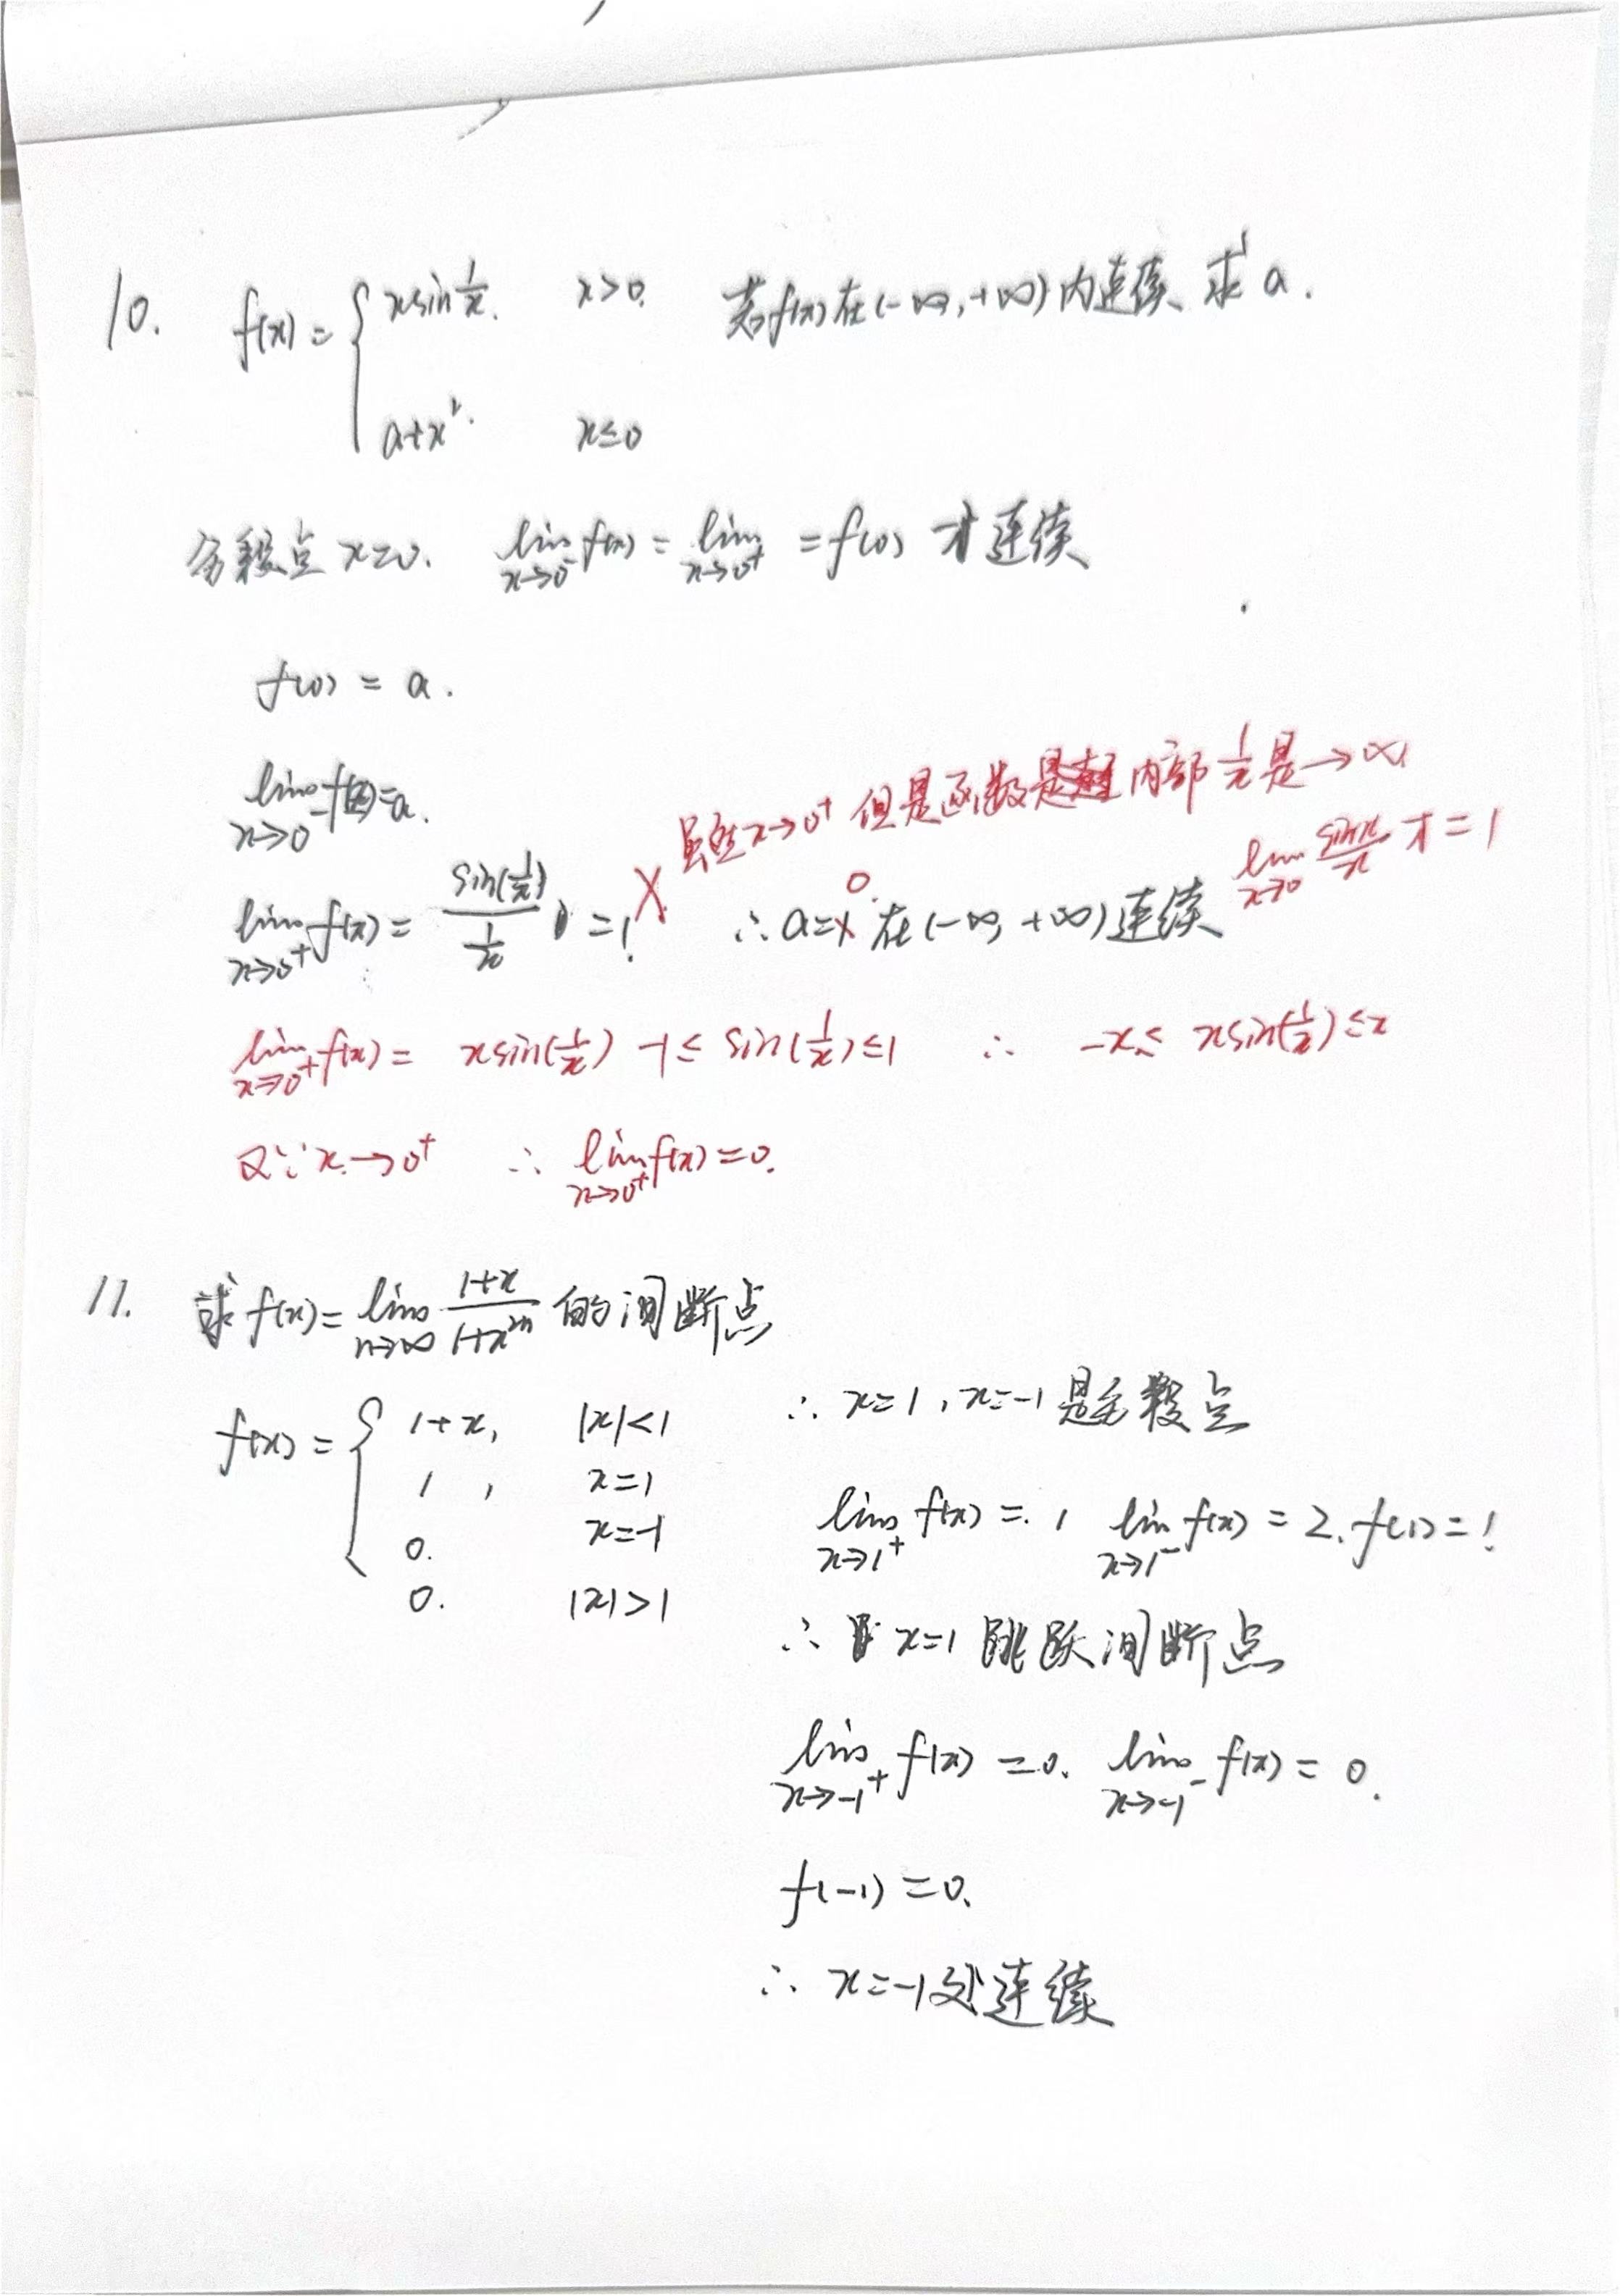 10. f(x)= { xsin1/x. x>0. 若f(x)在(-∞,+∞)内连续、求a.
a+x². x≤0
分段点x=0. lim x→0⁻ f(x) = lim x→0⁺ = f(0) 才连续
f(0) = a.
lim x→0⁻ f(x)=a.
虽然x→0⁺ 但是函数是 内部1/x是→∞
lim x→0 sinx/x 才=1
lim x→0⁺ f(x) = sin(1/x) / 1/x =1 X ∴ a=0 在(-∞, +∞)连续
lim x→0⁺ f(x) = xsin(1/x) -1≤ sin(1/x)≤1 ∴ -x≤ xsin(1/x)≤x
又∵x→0⁺ ∴ lim x→0⁺ f(x)=0.
11. 求f(x)= lim n→∞ 1+x / 1+x²ⁿ 的间断点
f(x) = { 1+x, |x|<1
1, x=1
0. x=-1
0. |x|>1
∴ x=1, x=-1是分段点
lim x→1⁺ f(x) = 1 lim x→1⁻ f(x) = 2. f(1)=1
∴ x=1 跳跃间断点
lim x→-1⁺ f(x) =0. lim x→-1⁻ f(x) = 0.
f(-1)=0.
∴ x=-1处连续